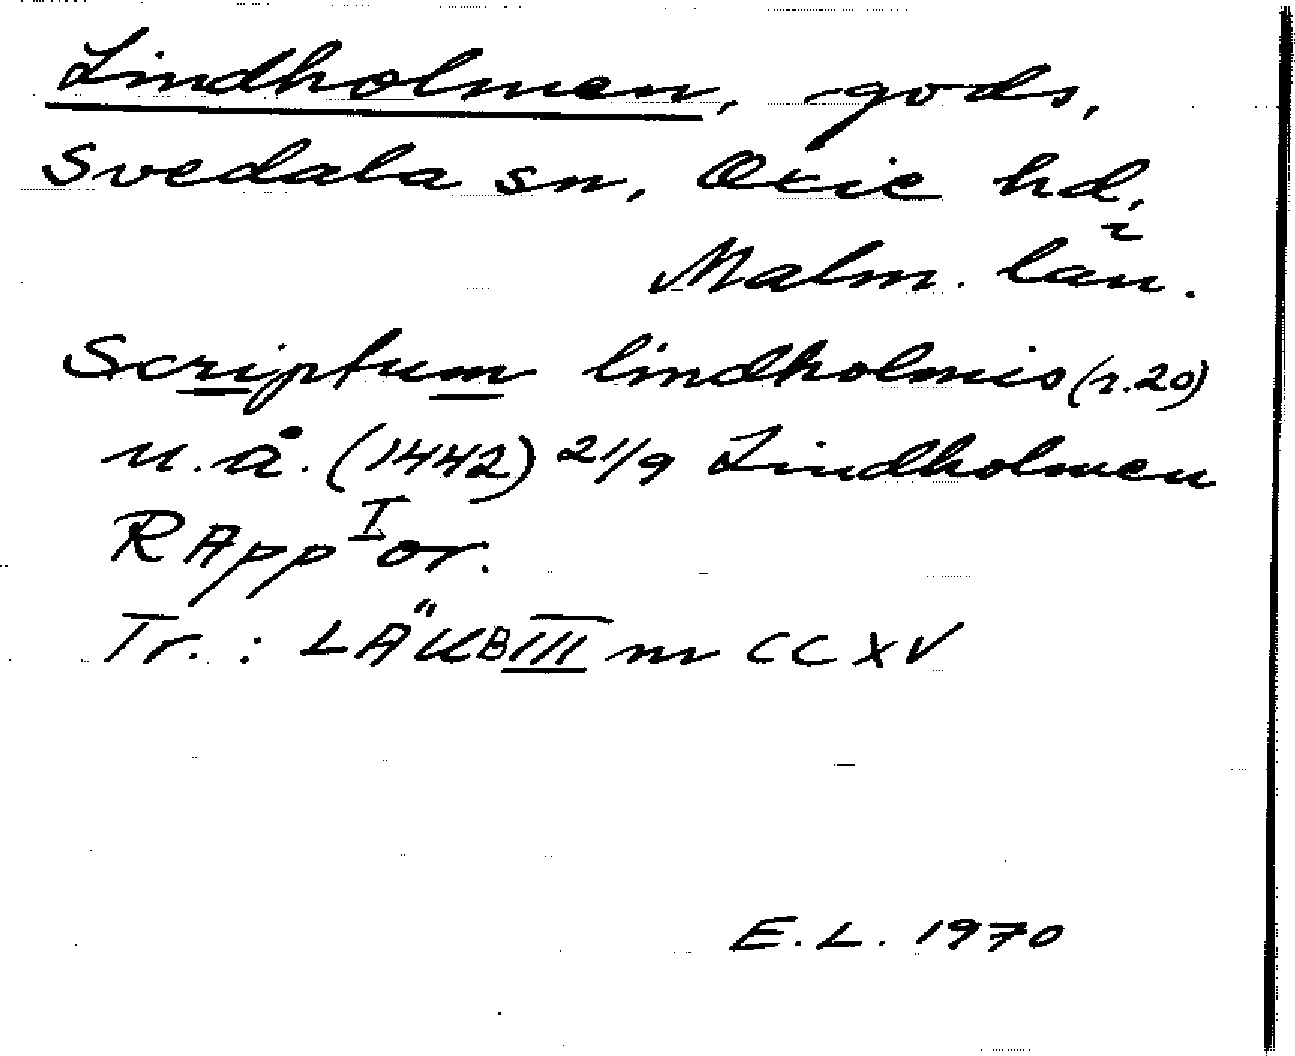 Lindholmen, gods,
Svedala sn, Oxie hd,
Malm. län.
Scriptum lindholmis (r.20)
u.å. (1442) 21/9 Lindholmen
RApp I or.
Tr.: LÄUB III nr CCXV
E.L. 1970